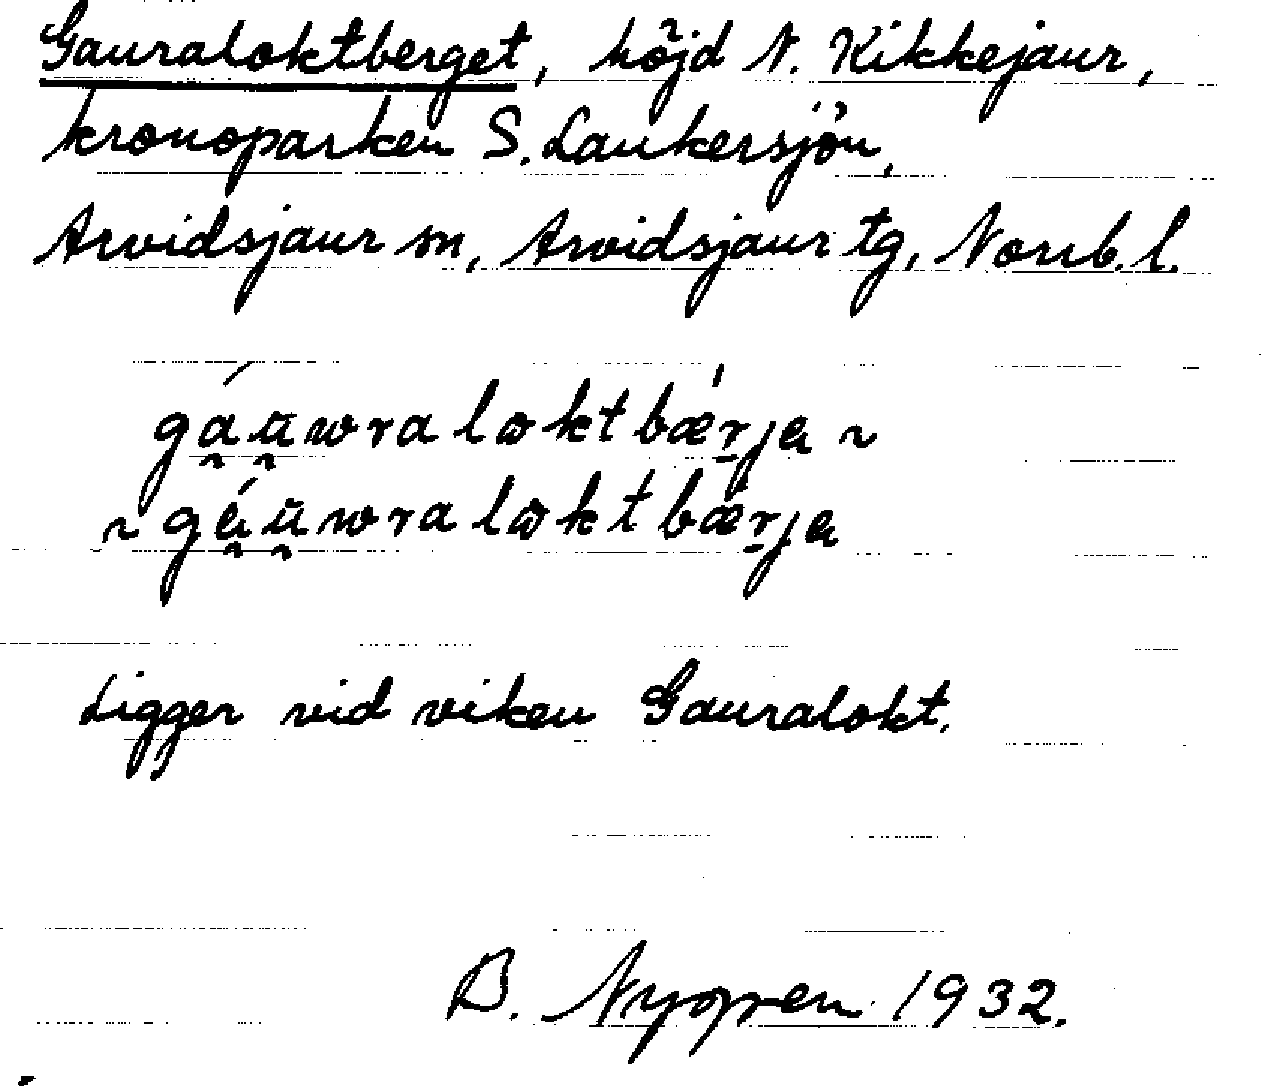 Gauraloktberget, höjd N. Kikkejaur,
kronoparken S. Laukersjön,
Arvidsjaur sn, Arvidsjaur tg, Norrb. l.
gáu̯wraloktbær̲ja ~
~ gáu̯wraloktbær̲ja
Ligger vid viken Gauralokt.
B. Nygren 1932.